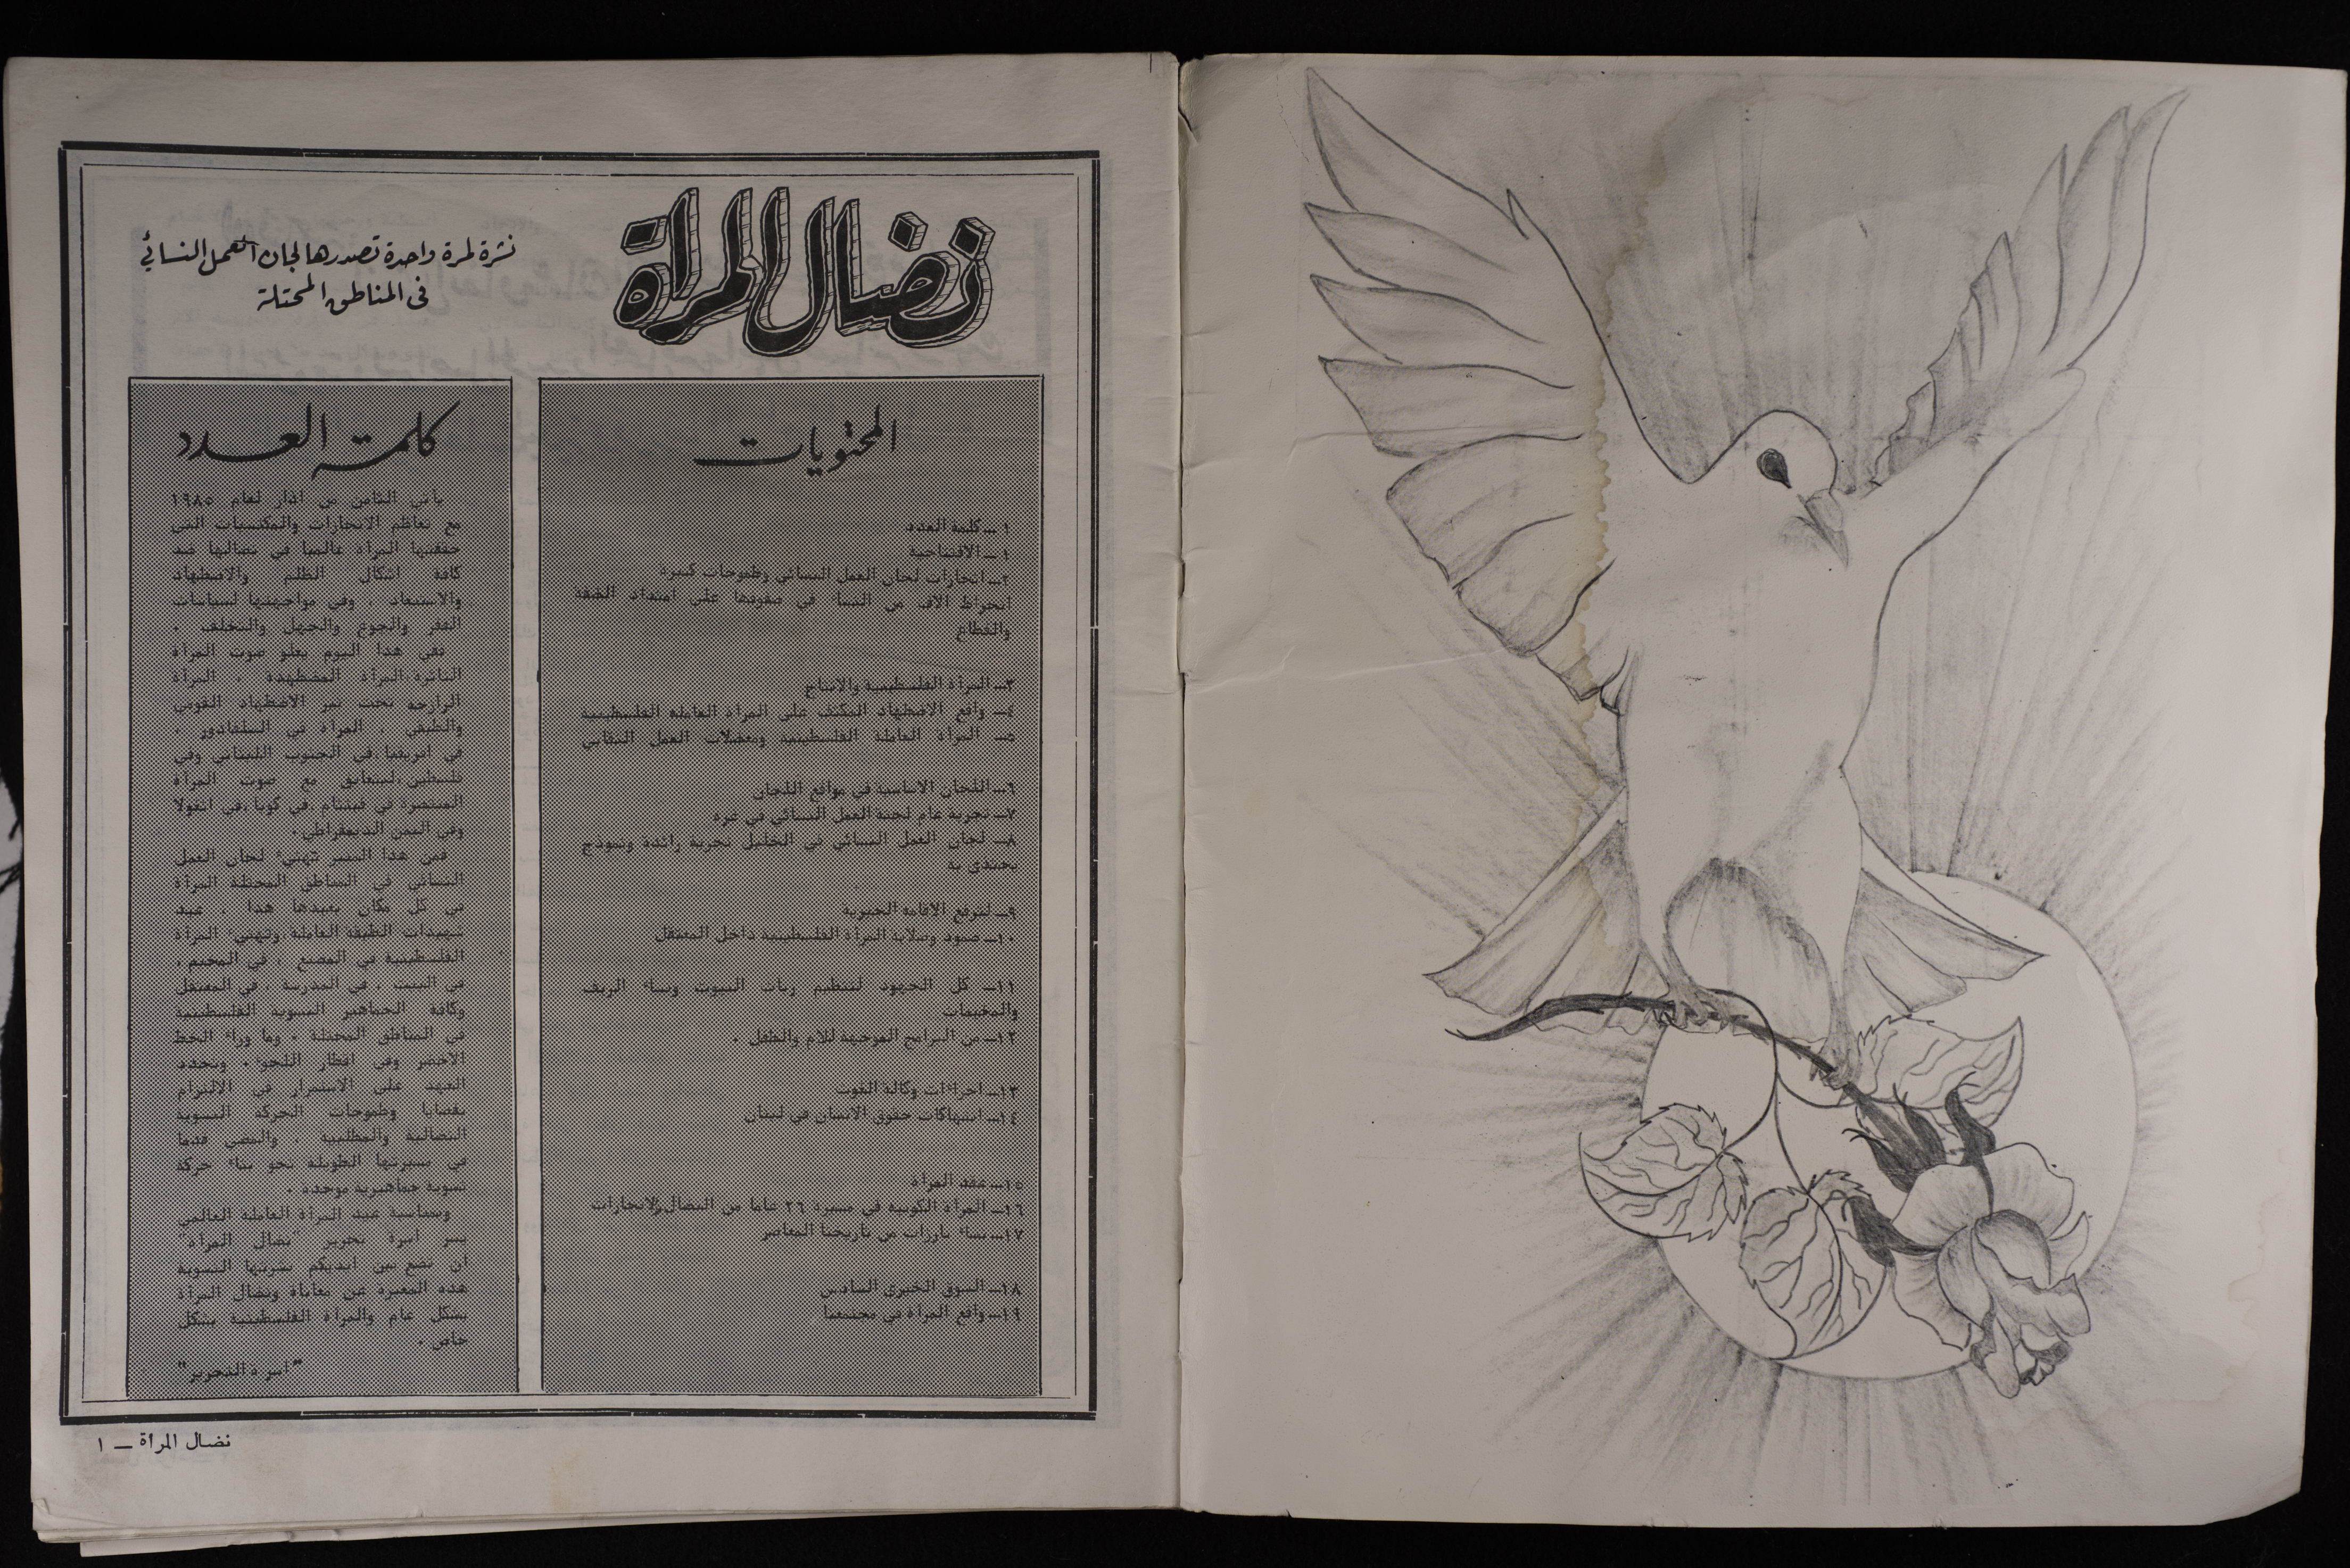 نضال المرأة
نشرة لمرة واحدة تصدرها لجان العمل النسائي
في المناطق المحتلة
المحتويات
١ــ كلمة العدد
١ــ الافتتاحية
٢ــ انجازات لجان العمل النسائي وطموحات كبيرة
انخراط الاف من النساء في صفوفها على امتداد الضفة
والقطاع
٣ــ المرأة الفلسطينية والانتاج
٤ــ واقع الاضطهاد المكثف على المرأة العاملة الفلسطينية
٥ــ المرأة العاملة الفلسطينية ومعضلات العمل النقابي
٦ــ اللجان الاساسية في مواقع اللجان
٧ــ تجربة عام لجنة العمل النسائي في غزة
٨ــ لجان العمل النسائي في الخليل تجربة رائدة ونموذج
يحتذى به
٩ــ لترفع الاقامة الجبرية
١٠ــ صمود وصلابة المرأة الفلسطينية داخل المعتقل
١١ــ كل الجهود لتنظيم ربات البيوت ونساء الريف
والمخيمات
١٢ــ من البرامج الموجهة للام والطفل .
١٣ــ اجراءات وكالة الغوث
١٤ــ انتهاكات حقوق الانسان في لبنان
١٥ــ عقد المرأة
١٦ــ المرأة الكوبية في مسيرة ٢٦ عاما من النضال والانجازات
١٧ــ نساء بارزات من تاريخنا المعاصر
١٨ــ السوق الخيري السادس
١٩ــ واقع المرأة في مجتمعنا
كلمة العدد
يأتي الثامن من اذار لعام ١٩٨٥
مع تعاظم الانجازات والمكتسبات التي
حققتها المرأة عالميا في نضالها ضد
كافة اشكال الظلم والاضطهاد
والاستعباد ، وفي مواجهتها لسياسات
الفقر والجوع والجهل والتخلف .
ففي هذا اليوم يعلو صوت المرأة
الثائرة،المرأة المضطهدة ، المرأة
الرازحة تحت نير الاضطهاد القومي
والطبقي ، المرأة في السلفادور ،
في افريقيا،في الجنوب اللبناني وفي
فلسطين،ليتعانق مع صوت المرأة
المنتصرة في فيتنام ،في كوبا،في انغولا
وفي اليمن الديمقراطي.
فمن هذا المنبر تهنيء لجان العمل
النسائي في المناطق المحتلة المرأة
في كل مكان بعيدها هذا ، عيد
شهيدات الطبقة العاملة،وتهنيء المرأة
الفلسطينية في المصنع ، في المخيم ،
في البيت ، في المدرسة ، في المعتقل
وكافة الجماهير النسوية الفلسطينية
في المناطق المحتلة ، وما وراء الخط
الاخضر وفي اقطار اللجوء . وتجدد
العهد على الاستمرار في الالتزام
بقضايا وطموحات الحركة النسوية
النضالية والمطلبية ، والمضي قدما
في مسيرتها الطويلة نحو بناء حركة
نسوية جماهيرية موحدة .
وبمناسبة عيد المرأة العاملة العالمي
يسر اسرة تحرير "نضال المرأة"
ان تضع بين ايديكم نشرتها النسوية
هذه المعبرة عن معاناة ونضال المرأة
بشكل عام والمرأة الفلسطينية بشكل
خاص .
"اسرة التحرير"
نضال المرأة ــ ١